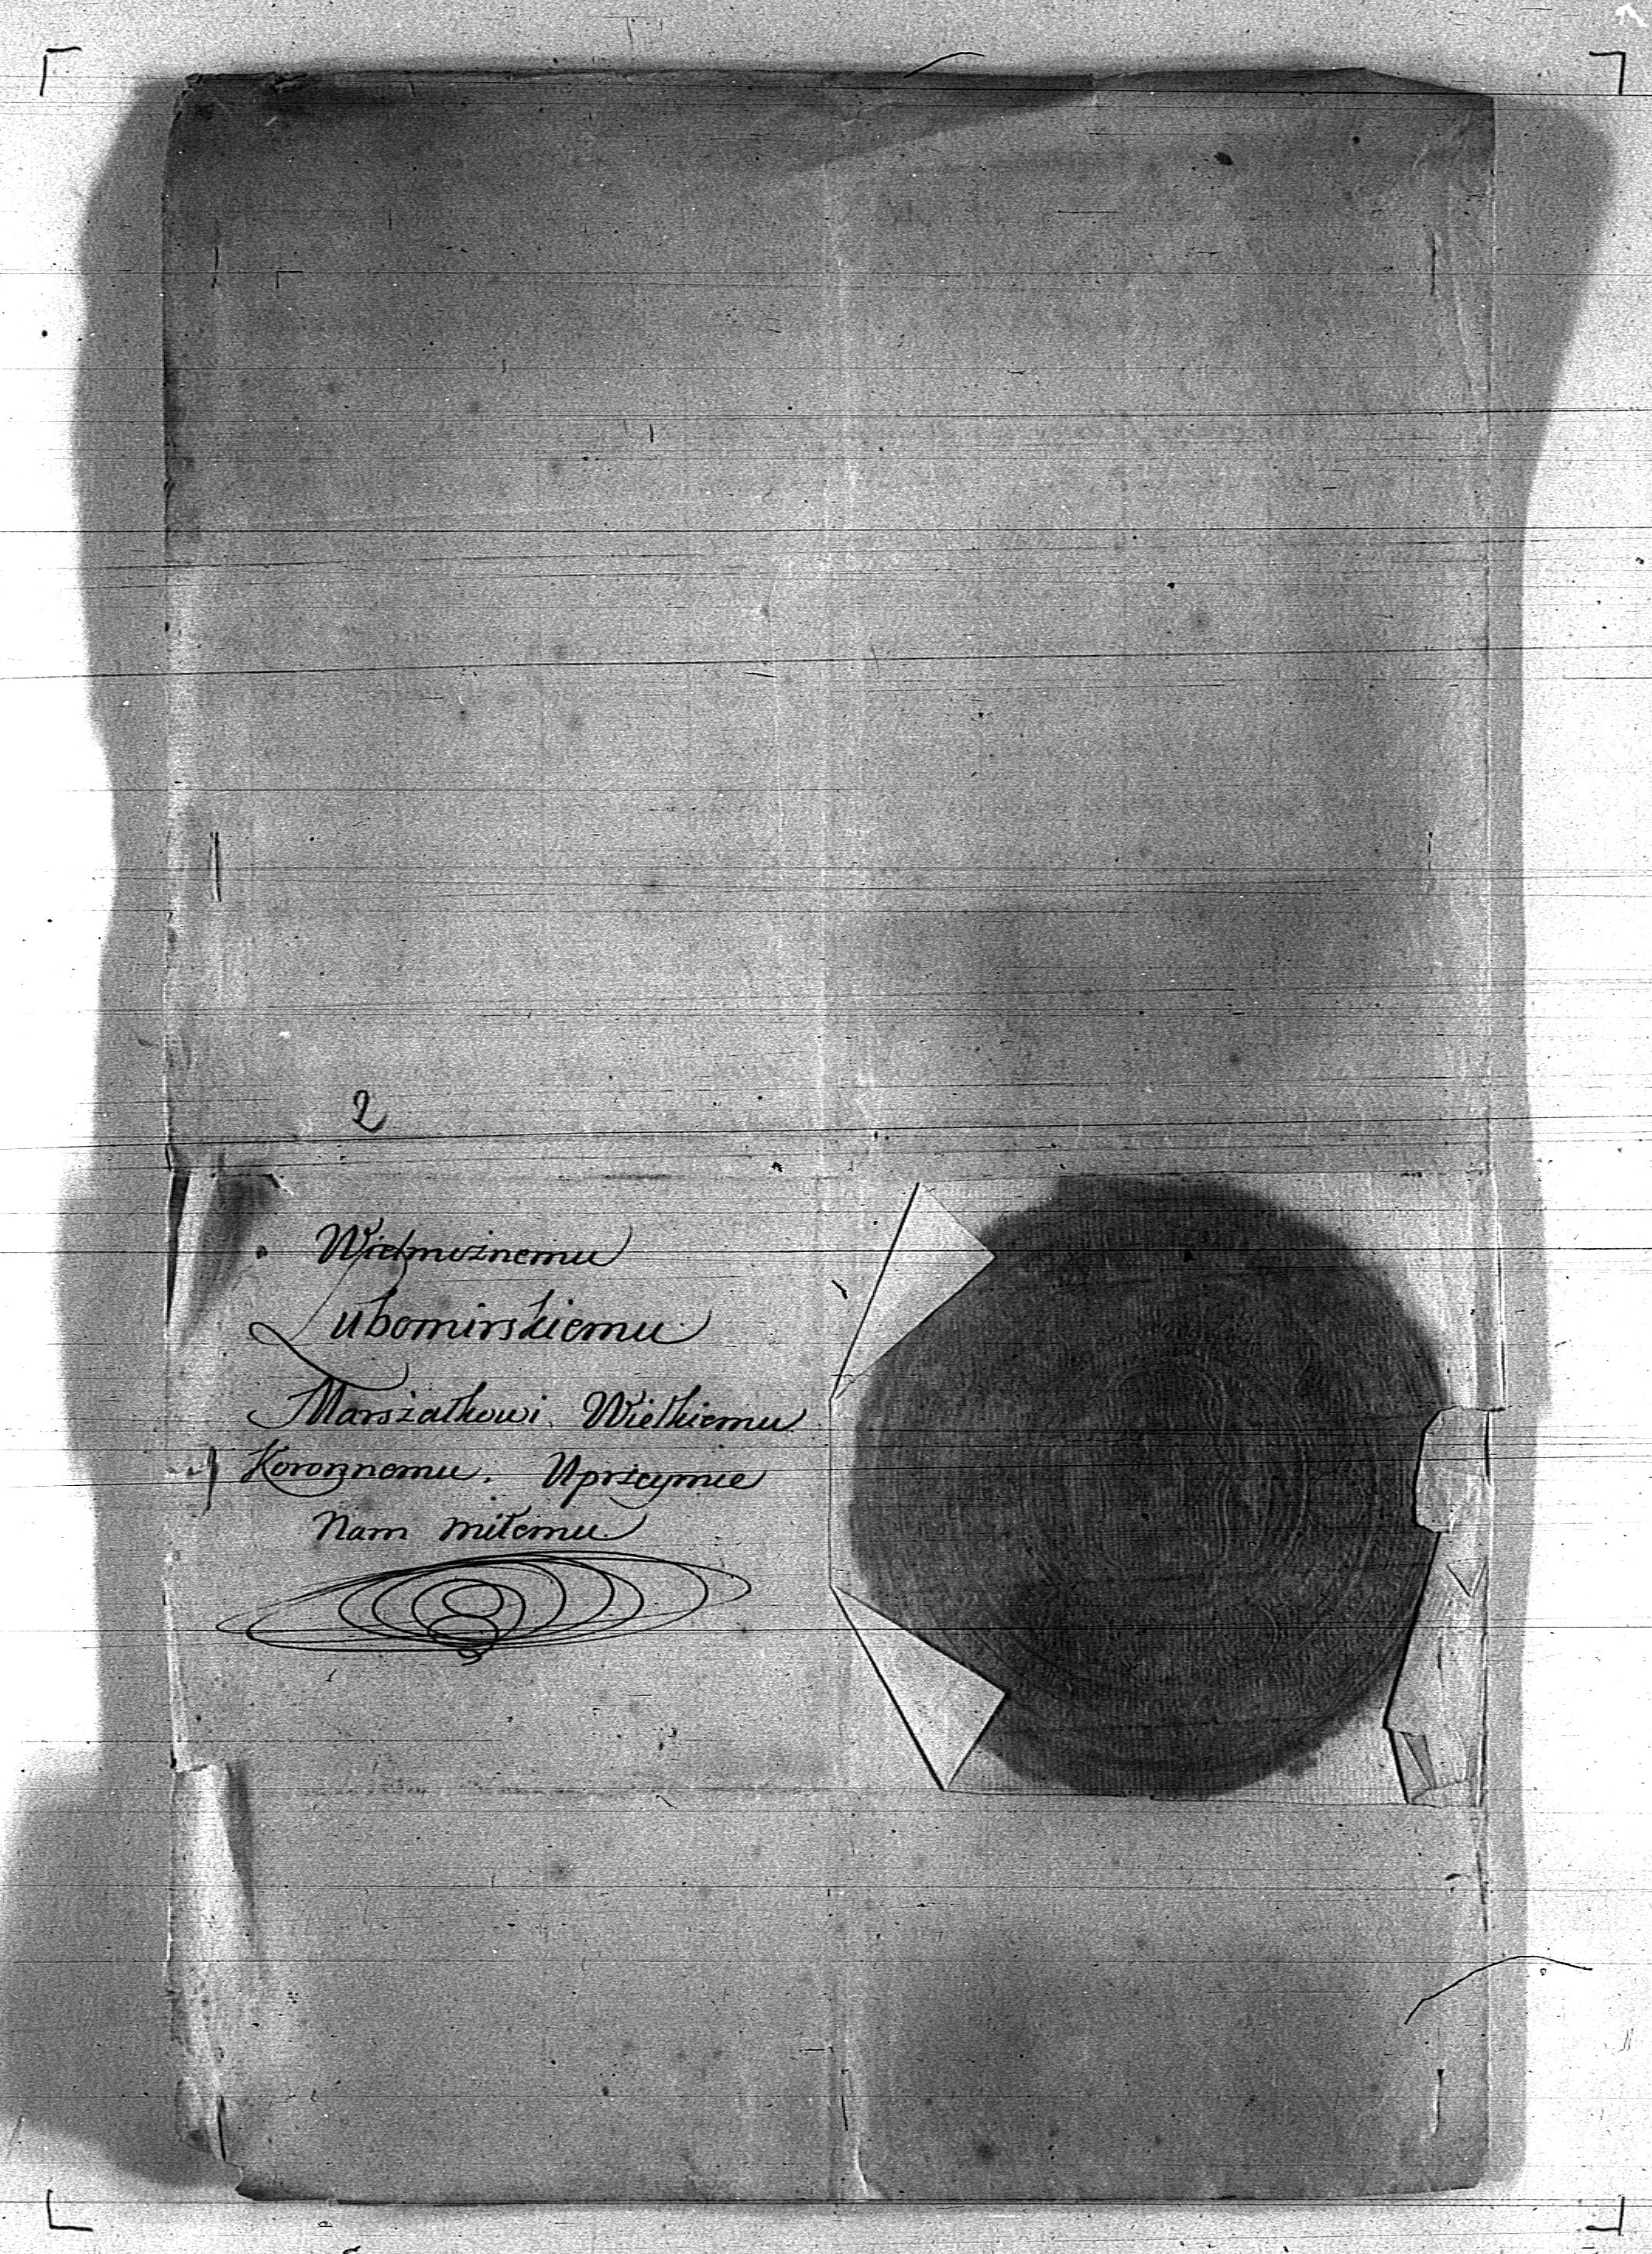 2
Wielmożnemu
Lubomirskiemu
Marszałkowi Wielkiemu
Koronnemu. Uprzeymie
Nam miłemu.